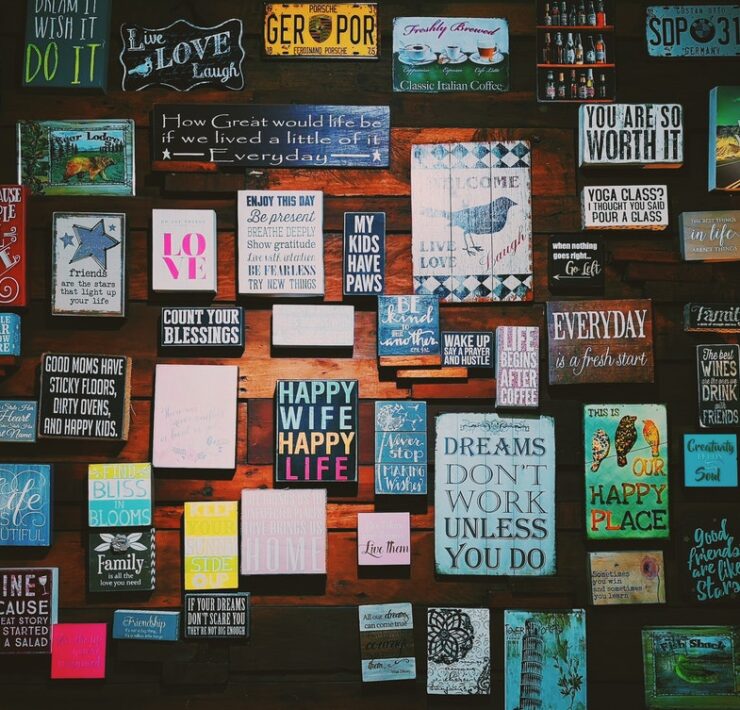 DREAM IT
WISH IT
DO IT
Live
LOVE
Laugh
PORSCHE
GER POR
FERDINAND PORSCHE
Freshly Brewed
Cappuccino Espresso Cafe Latte
Classic Italian Coffee
SDP 31
GERMANY
How Great would life be
if we lived a little of it
Everyday
YOU ARE SO
WORTH IT
Lodge
WELCOME
LIVE
LOVE
Laugh
YOGA CLASS?
I THOUGHT YOU SAID
POUR A GLASS
THE BEST THINGS
in life
AREN'T THINGS
when nothing
goes right...
Go Left
friends
are the stars
that light up
your life
LO
VE
ENJOY THIS DAY
Be present
BREATHE DEEPLY
Show gratitude
BE FEARLESS
TRY NEW THINGS
MY
KIDS
HAVE
PAWS
COUNT YOUR
BLESSINGS
BE
kind
to one
another
WAKE UP
SAY A PRAYER
AND HUSTLE
LIFE
BEGINS
AFTER
COFFEE
EVERYDAY
is a fresh start
The best
WINES
are the ones we
DRINK
with
FRIENDS
GOOD MOMS HAVE
STICKY FLOORS,
DIRTY OVENS,
AND HAPPY KIDS.
HAPPY
WIFE
HAPPY
LIFE
Never
stop
MAKING
Wishes
DREAMS
DON'T
WORK
UNLESS
YOU DO
THIS IS
OUR
HAPPY
PLACE
Creativity
Soul
Life
BLISS
IN
BLOOMS
Family
is all the
love you need
KEEP
YOUR
SUNNY
SIDE
UP
HOME
Live them
Sometimes
you win
and sometimes
you learn
Good
friends
are like
Stars
CAUSE
GREAT STORY
STARTED
A SALAD
Friendship
IF YOUR DREAMS
DON'T SCARE YOU
THEY'RE NOT BIG ENOUGH
All our dreams
can come true
courage
them
Fish Shack